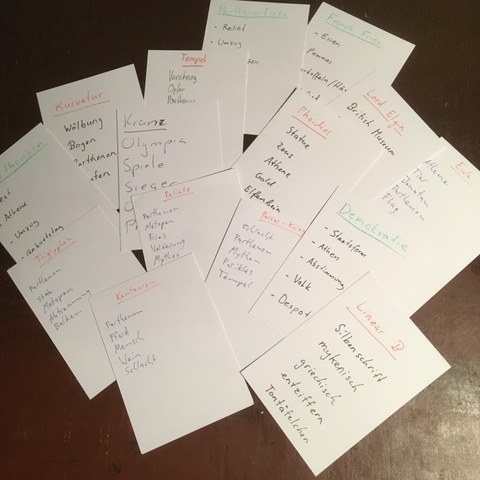 Parthenonfries
- Relief
- Umzug
French Fries
- Essen
- Pommes
Tempel
Verehrung
Opfer
Parthenon
Kurvatur
Wölbung
Bogen
Parthenon
Kranz
Olympia
Spiele
Sieger
Phidias
Statue
Zeus
Athene
Gold
Elfenbein
Lord Elgin
British Museum
Eule
Athene
Tier
Parthenon
Flug
- Athene
- Umzug
- Geburtstag
Triglyphen
Parthenon
Metopen
Abtrennung
Balken
Reliefs
Parthenon
Metopen
Fries
Verzierung
Mythos
Perser-Kriege
Schlacht
Parthenon
Mythen
Perikles
Tempel
Demokratie
- Staatsform
- Athen
- Abstimmung
- Volk
- Despot
Kentauren
Parthenon
Pferd
Mensch
Wein
Schlacht
Linear B
Silbenschrift
mykenisch
griechisch
entziffern
Tontäfelchen